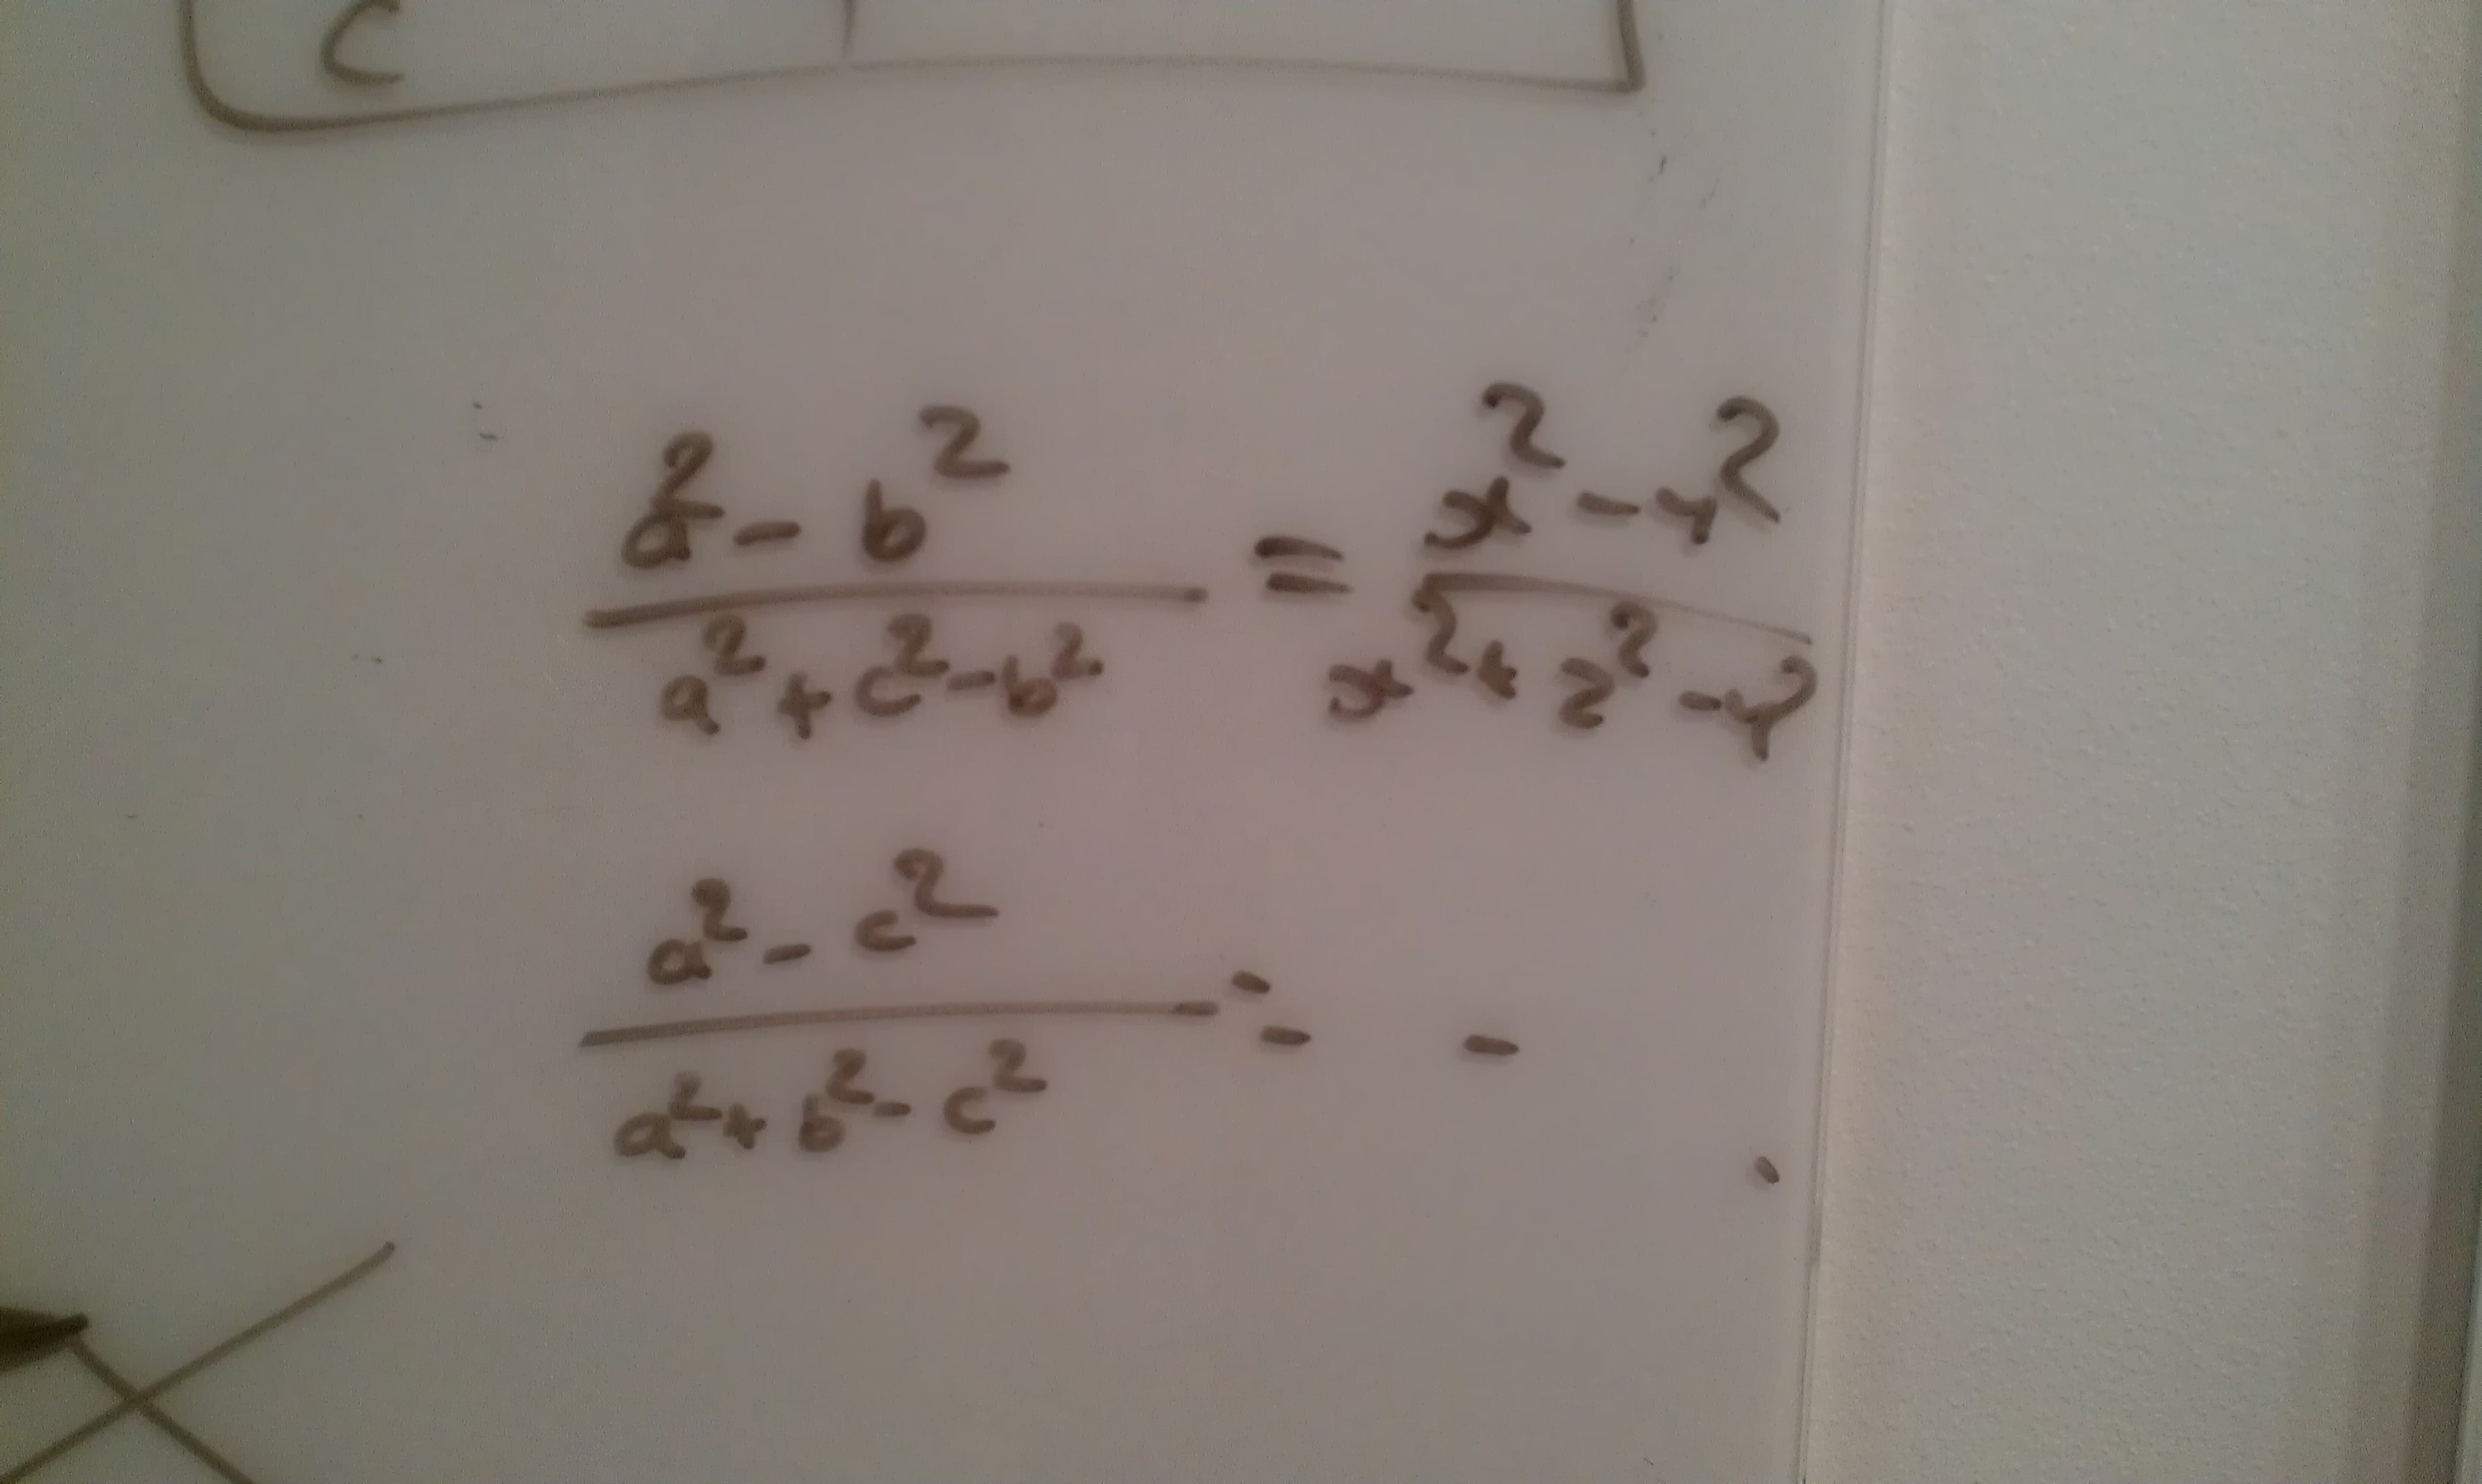 c
a² - b² / a² + c² - b² = x² - y² / x² + z² - y²
a² - c² / a² + b² - c² = -